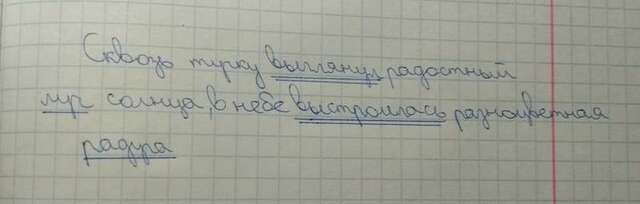 Сквозь тучку выглянул радостный
луч солнца, в небе выстроилась разноцветная
радуга